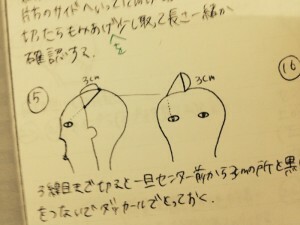 片方のサイドへいって
切ったらもみあげ少し取って長さ一緒か
を
確認する。
⑮
3cm
3cm
⑯
3線目まで切ると一旦センター前から3cmの所と黒
をつないでダッカールでとっておく。